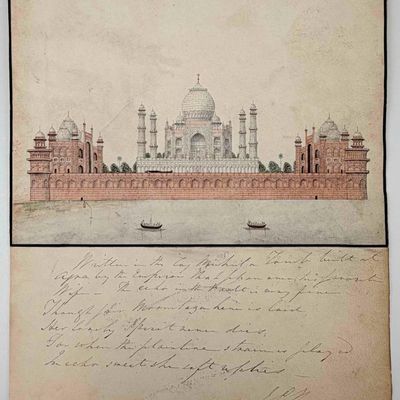 Written in the Taj Mehal a Tomb built at
Agra by the Emperor Shah Jehan over his favourite
Wife — The echo in the vault is very fine
Though fair Moomtaza here is laid
Her lovely Spirit never dies,
For when the plaintive strain is played
In echo sweet she soft replies —